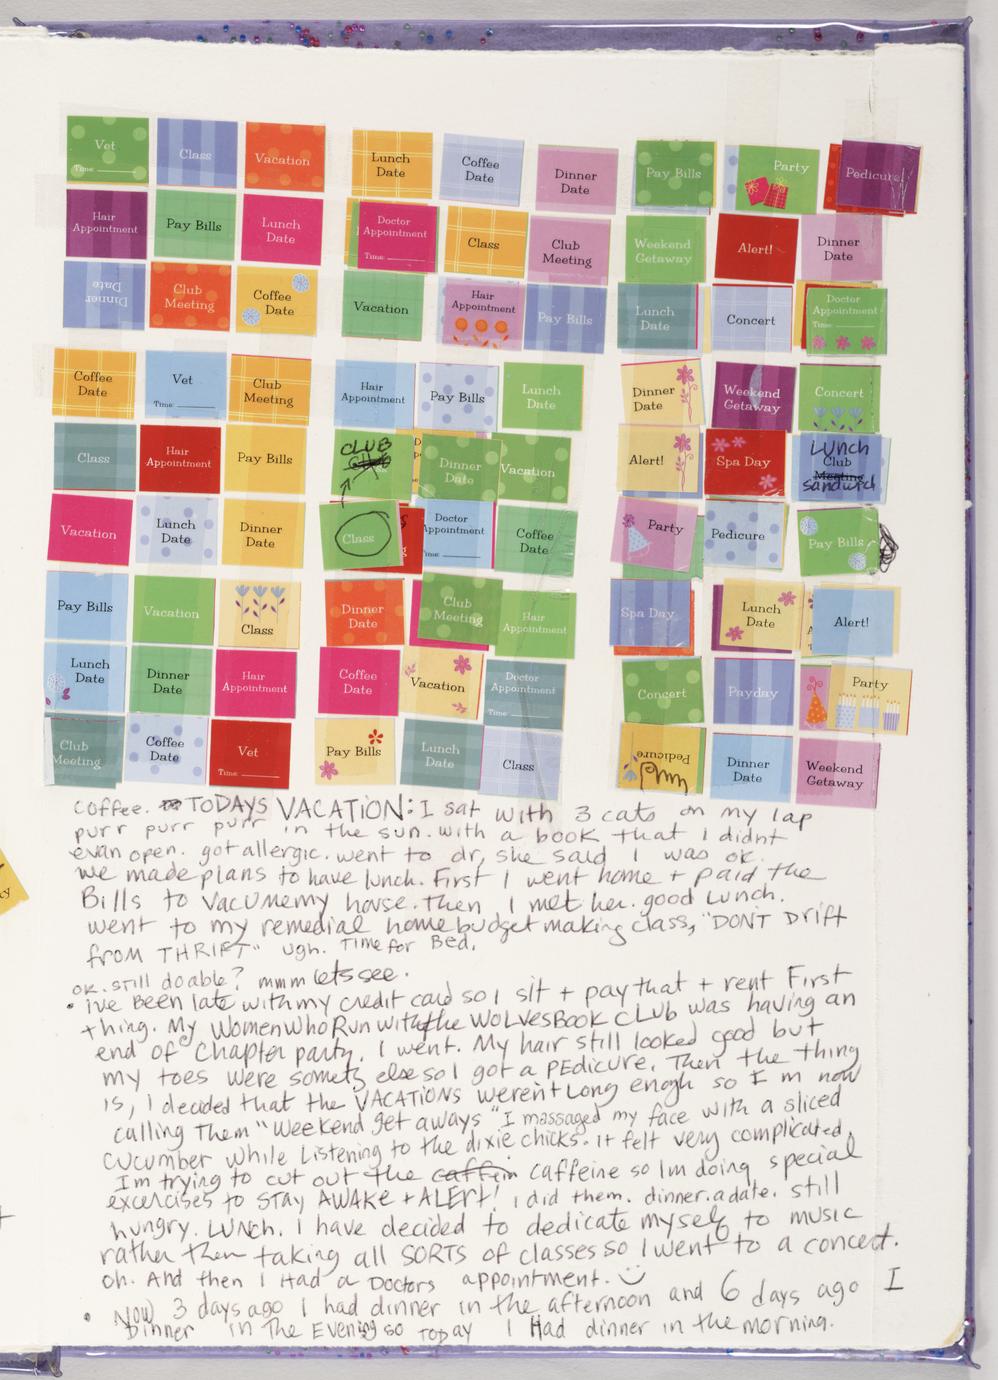 Vet Class Vacation Lunch Date Coffee Date Dinner Date Pay Bills Party Pedicure
Time:
Hair Appointment Pay Bills Lunch Date Doctor Appointment Class Club Meeting Weekend Getaway Alert! Dinner Date
Time:
Dinner Date Club Meeting Coffee Date Vacation Hair Appointment Pay Bills Lunch Date Concert Doctor Appointment
Time:
Coffee Date Vet Club Meeting Hair Appointment Pay Bills Lunch Date Dinner Date Weekend Getaway Concert
Time:
Class Hair Appointment Pay Bills CLUB Dinner Date Vacation Alert! Spa Day LUNCH Club Meeting sandwich
Vacation Lunch Date Dinner Date Class Doctor Appointment Coffee Date Party Pedicure Pay Bills
Time:
Pay Bills Vacation Class Dinner Date Club Meeting Hair Appointment Spa Day Lunch Date Alert!
Lunch Date Dinner Date Hair Appointment Coffee Date Vacation Doctor Appointment Concert Payday Party
Time:
Club Meeting Coffee Date Vet Pay Bills Lunch Date Class Pedicure Dinner Date Weekend Getaway
Time:
coffee. TODAYS VACATION: I sat with 3 cats on my lap
purr purr purr in the sun. with a book that I didnt
evan open. got allergic. went to dr, she said I was ok.
we made plans to have lunch. First I went home + paid the
Bills to Vacumemy house. then I met her. good lunch.
went to my remedial home budget making class, "DONT DRift
from THRIFT" ugh. Time for Bed.
ok. still doable? mmm lets see.
• ive Been late with my credit card so I sit + pay that + rent First
thing. My Women Who Run with the WOLVES BOOK CLUB was having an
end of Chapter party. I went. My hair still looked good but
my toes were sometg else so I got a PEdicure. Then the thing
is, I decided that the VACATIONS weren't Long enogh so I m now
calling Them "Weekend get aways" I massaged my face with a sliced
cucumber while Listening to the dixie chicks. it felt very complicated.
Im trying to cut out the caffein caffeine so Im doing special
excercises to STAY AWAKE + ALERT! I did them. dinner. a date. still
hungry. LUNCH. I have decided to dedicate myself to music
rather then taking all SORTS of classes so I went to a concert.
oh. And then I Had a Doctors appointment.
• Now 3 days ago I had dinner in the afternoon and 6 days ago I
Dinner in The Evening so Today I Had dinner in the morning.